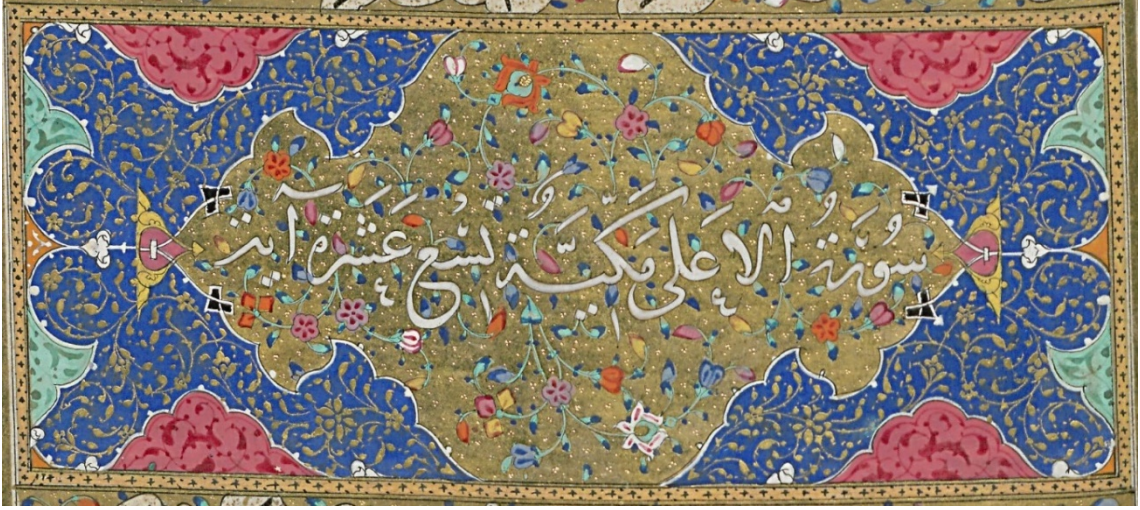 سُورَةُ الاَعلى مَكِّيَّةٌ تِسْعَ عَشَرَة آية